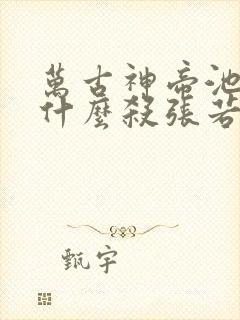 萬古神帝池
什麼殺張若
甄宇